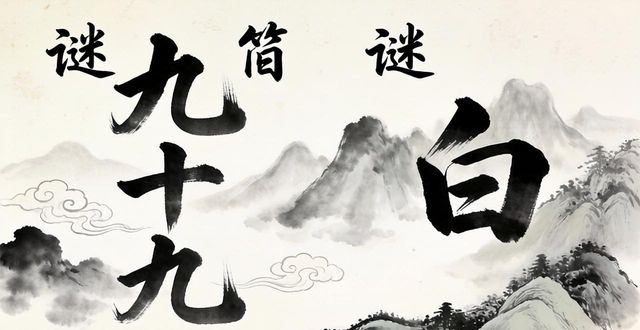 谜 简 谜
九十九
白